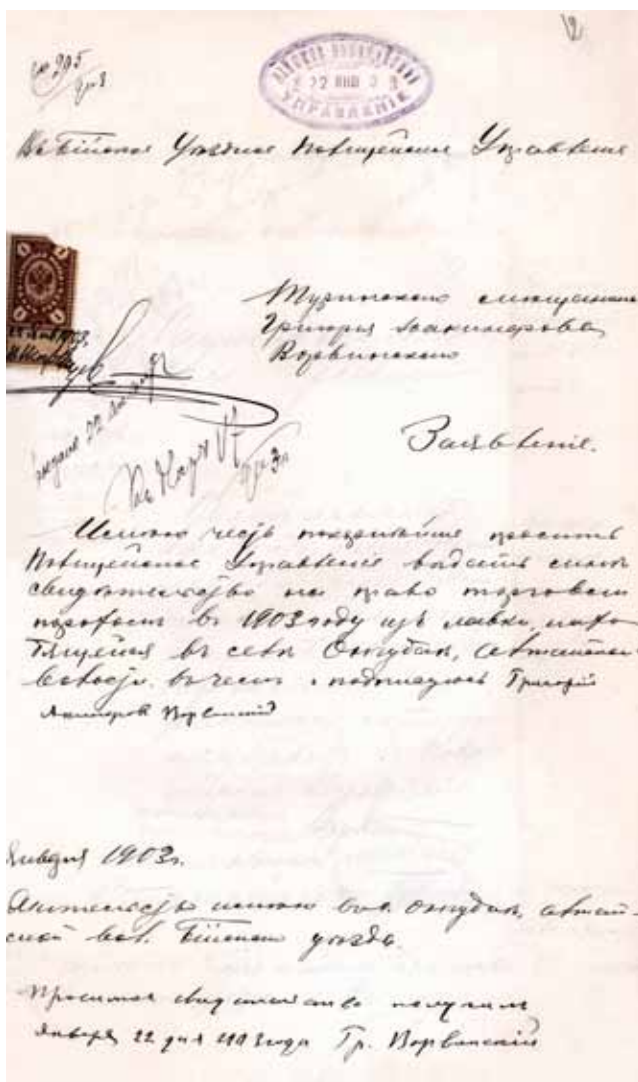 12
№ 295
БІЙСКОЕ ПОЛИЦЕЙСКОЕ
22 ЯНВ 3
УПРАВЛЕНІЕ
Въ Бійское Уѣздное Полицейское Управленіе
1
1
Туринскаго мѣщанина
Григорья
Ворвинскаго
22
Заявленіе.
Имѣю честь покорнѣйше просить
Полицейское Управленіе выдать мнѣ
свидѣтельство на право торговли
порохомъ въ 1903 году изъ лавки, нахо-
дящейся въ селѣ Онгудаѣ,
волости. въ чемъ и подписуюсь Григорій
Ворвинскій
Января 1903 г.
Жительство имѣю въ Онгудаѣ,
Бійскаго уѣзда.
Просимое свидѣтельство получилъ
Января 22 дня 1903 года Гр. Ворвинскій